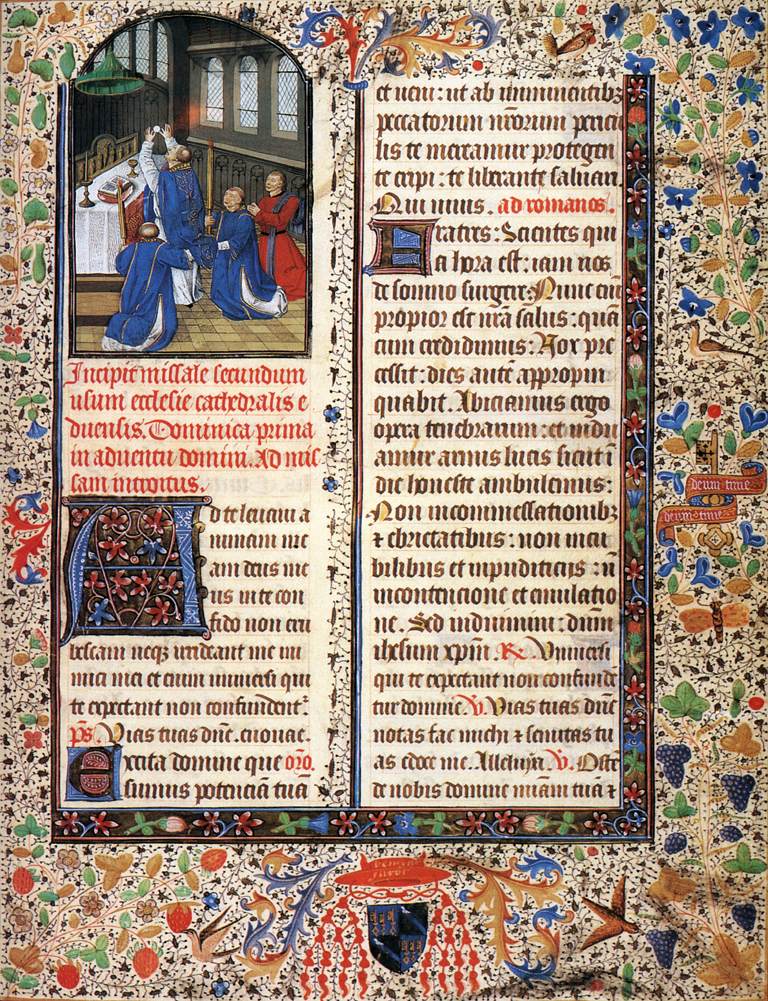 Incipit missale secundum
usum ecclesie cathedralis e
duensis. Dominica prima
in aduentu domini. Ad mis
sam introitus.
Ad te leuaui a
nimam me
am deus me
us in te con
fido non eru
bescam neqz irrideant me ini
mici mei et enim uniuersi qui
te expectant non confundent᷑.
ps̄ Vias tuas dn̄e. euouae.
Excita domine que or̄o.
sumus potenciā tuā
et ueni : ut ab imminentibz
peccatorum nr̄orum pericu
lis te mereamur protegen
te eripi : te liberante saluari
Qui uiuis. ad romanos.
Fratres : Scientes qui
a hora est : iam nos
de somno surgere. Nunc eni
propior est nr̄a salus : quā
cum credidimus : Nox pre
cessit : dies autē appropin
quabit. Abiciamus ergo
opera tenebrarum : et indu
amur armis lucis sicut ī
die honeste ambulemus :
Non in commessationibz
⁊ ebrietatibus : non in cu
bilibus et inpudiciciis : n̄
in contencione et emulatio
ne. Sed induimini : dūm
ihesum xpm̄ R. Vniuersi
qui te expectant non confund
tur domine V. Vias tuas dn̄e
notas fac michi ⁊ semitas tu
as edoce me. Alleluya V. Oste
de nobis domine miam̄ tuā ⁊
deum time
deum time